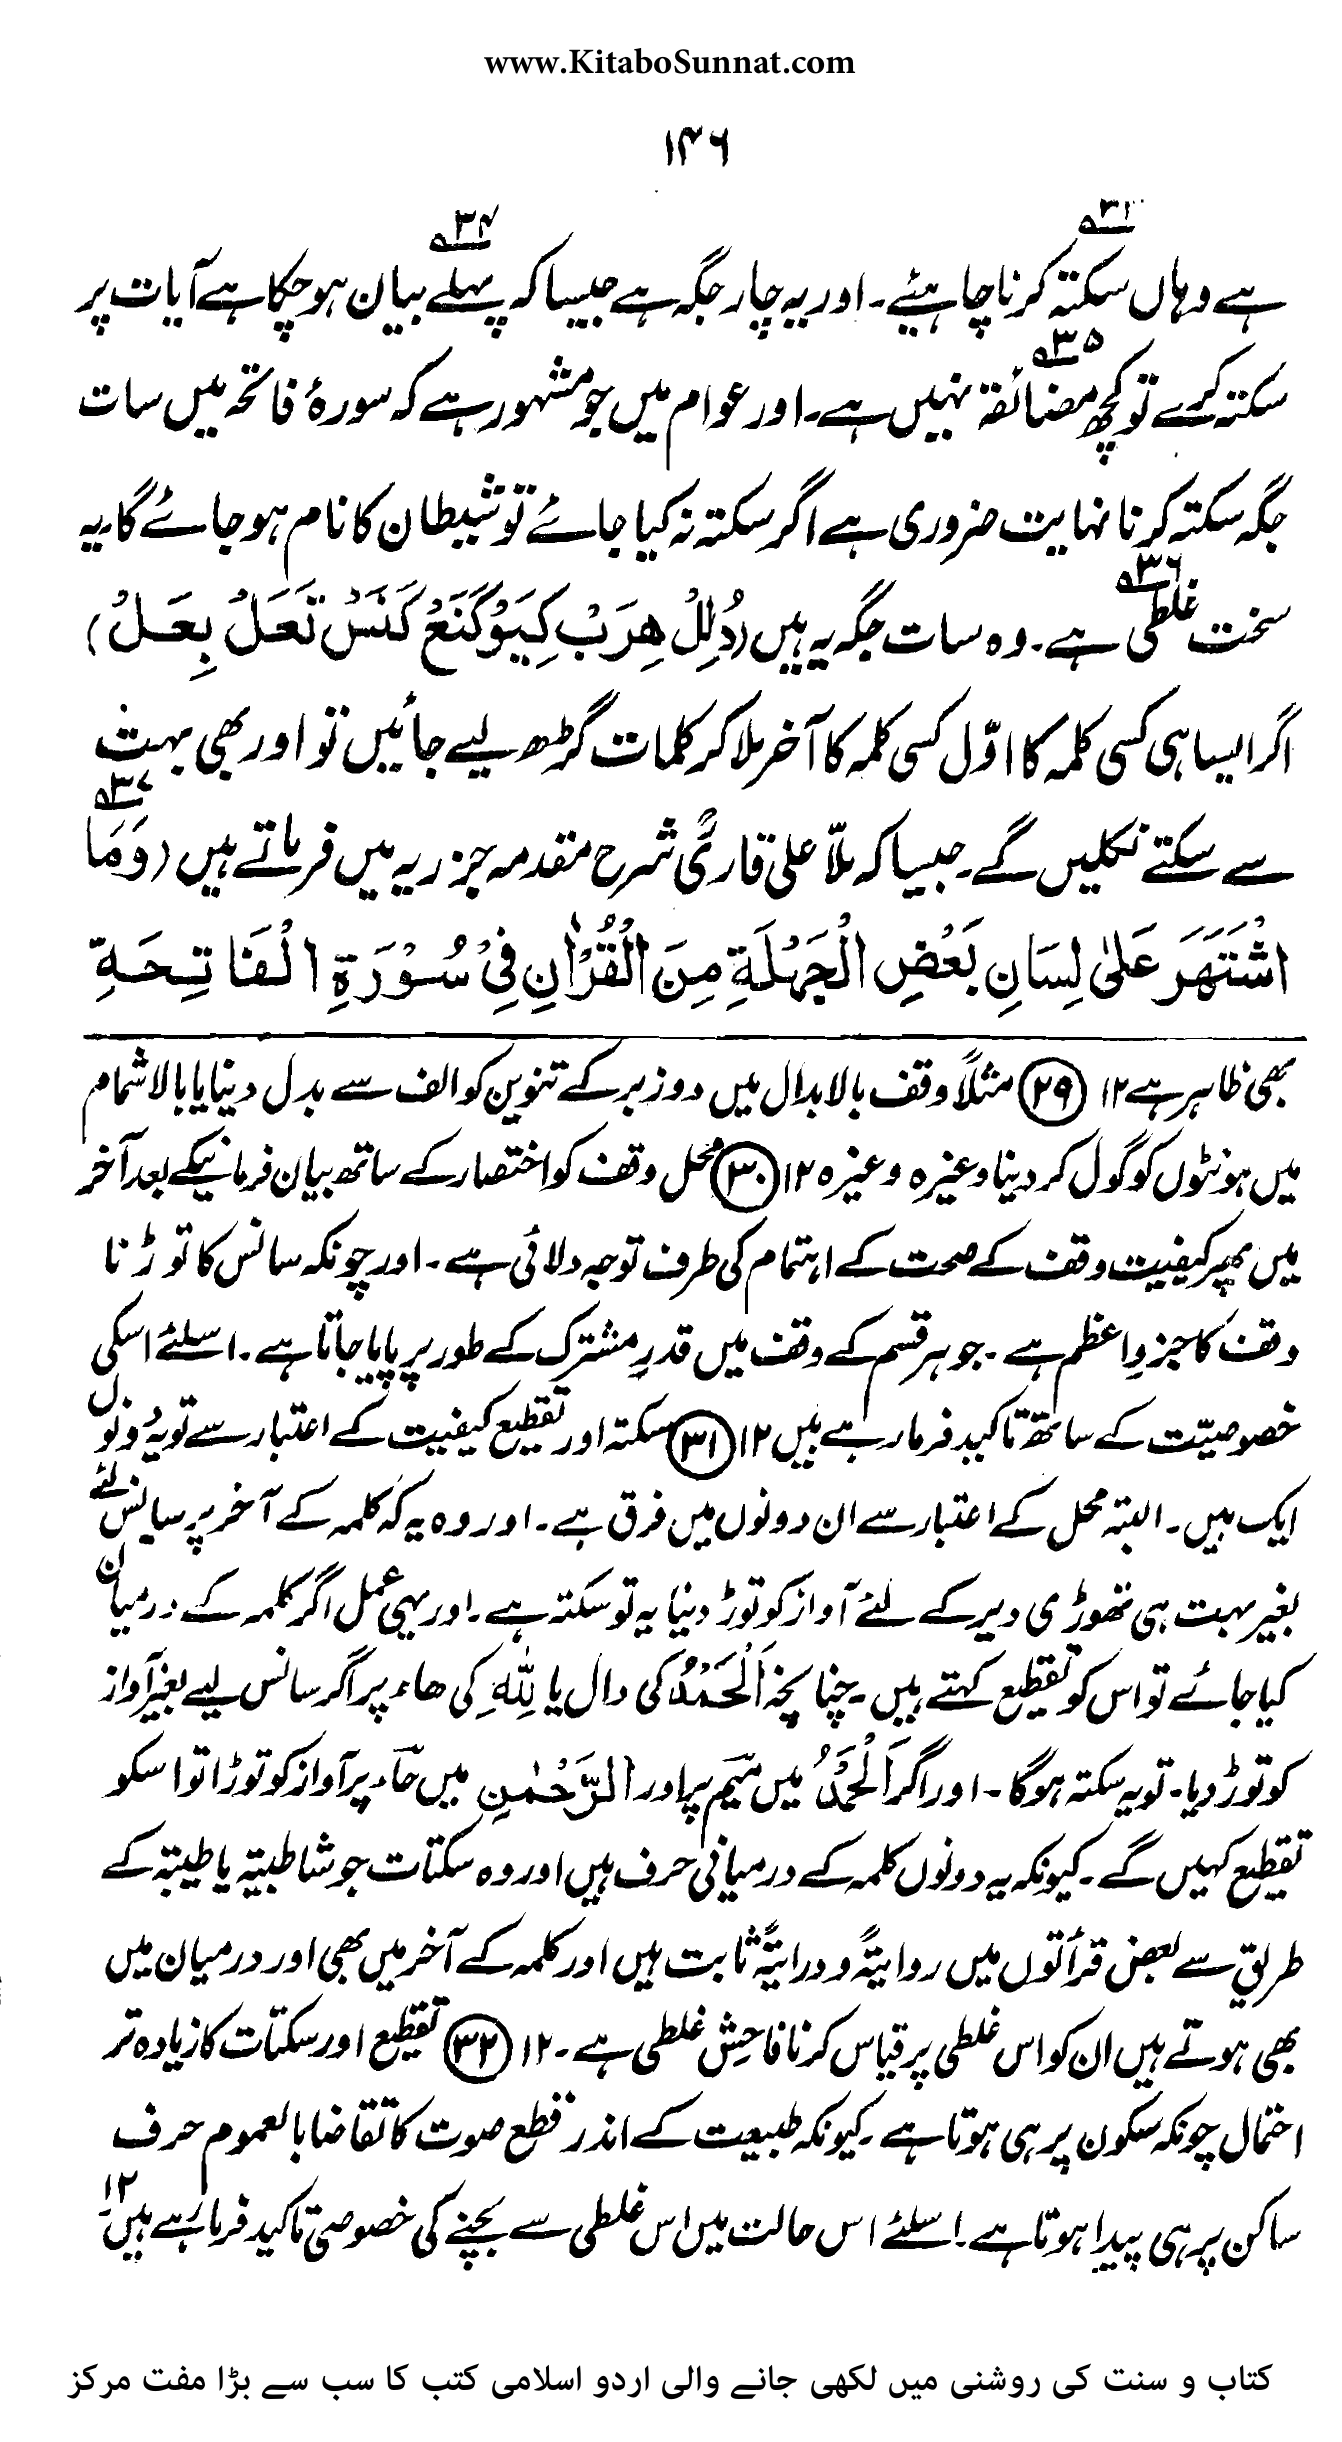 www.KitaboSunnat.com
۱۴۶
ہے وہاں سکتہ کرنا چاہیئے۔ اور یہ چار جگہ ہے جیسا کہ پہلے ۳۴ بیان ہو چکا ہے آیات پر
سکتہ کرے تو کچھ مضائقہ ۳۵ نہیں ہے۔ اور عوام میں جو مشہور ہے کہ سورۂ فاتحہ میں سات
جگہ سکتہ کرنا نہایت ضروری ہے اگر سکتہ نہ کیا جائے تو شیطان کا نام ہو جائے گا۔ یہ
سخت غلطی ۳۶ ہے۔ وہ سات جگہ یہ ہیں (دُلِلْ هِرَبْ كِيَوْ كَنَعْ كَنَسْ تَعَلْ بِعَلْ)
اگر ایسا ہی کسی کلمہ کا اوّل کسی کلمہ کا آخر ملا کر کلمات گڑھ لیے جائیں تو اور بھی بہت
سے سکتے نکلیں گے۔ جیسا کہ ملّا علی قاریؒ شرح مقدمہ جزریہ میں فرماتے ہیں ۳۷ (وَمَا
اشْتَهَرَ عَلٰى لِسَانِ بَعْضِ الْجَهَلَةِ مِنَ الْقُرْاٰنِ فِىْ سُوْرَةِ الْفَاتِحَةِ
بھی ظاہر ہے ۱۲ ۲۹ مثلاً وقف بالابدال میں دو زبر کے تنوین کو الف سے بدل دینا یا بالاشمام
میں ہونٹوں کو گول کر دینا وغیرہ وغیرہ ۱۲ ۳۰ محل وقف کو اختصار کے ساتھ بیان فرمانیکے بعد آخر
میں پھر کیفیت وقف کے صحت کے اہتمام کی طرف توجہ دلائی ہے۔ اور چونکہ سانس کا توڑنا
وقف کا جزوِ اعظم ہے۔ جو ہر قسم کے وقف میں قدرِ مشترک کے طور پر پایا جاتا ہے۔ اسلئے اسکی
خصوصیّت کے ساتھ تاکید فرما رہے ہیں ۱۲ ۳۱ سکتہ اور تقطیع کیفیت کے اعتبار سے تو یہ دونوں
ایک ہیں۔ البتہ محل کے اعتبار سے ان دونوں میں فرق ہے۔ اور وہ یہ کہ کلمہ کے آخر پر سانس لئے
بغیر بہت ہی تھوڑی دیر کے لئے آواز کو توڑ دینا یہ تو سکتہ ہے۔ اور یہی عمل اگر کلمہ کے درمیان
کیا جائے تو اس کو تقطیع کہتے ہیں۔ چنانچہ اَلْحَمْدُ کی دال یا لِلّٰہِ کی ھاء پر اگر سانس لیے بغیر آواز
کو توڑ دیا۔ تو یہ سکتہ ہوگا۔ اور اگر اَلْحَمْدُ میں میم پر اور الرَّحْمٰنِ میں حاء پر آواز کو توڑا تو اسکو
تقطیع کہیں گے۔ کیونکہ یہ دونوں کلمہ کے درمیانی حرف ہیں اور وہ سکتات جو شاطبیّہ یا طیبّہ کے
طریق سے بعض قرأتوں میں روایتہً و درایتہً ثابت ہیں اور کلمہ کے آخر میں بھی اور درمیان میں
بھی ہوتے ہیں ان کو اس غلطی پر قیاس کرنا فاحِش غلطی ہے۔ ۱۲ ۳۲ تقطیع اور سکتات کا زیادہ تر
احتمال چونکہ سکون پر ہی ہوتا ہے۔ کیونکہ طبیعت کے اندر قطع صوت کا تقاضا بالعموم حرف
ساکن پر ہی پیدا ہوتا ہے۔ اسلئے اس حالت میں اس غلطی سے بچنے کی خصوصی تاکید فرما رہے ہیں ۱۲
کتاب و سنت کی روشنی میں لکھی جانے والی اردو اسلامی کتب کا سب سے بڑا مفت مرکز